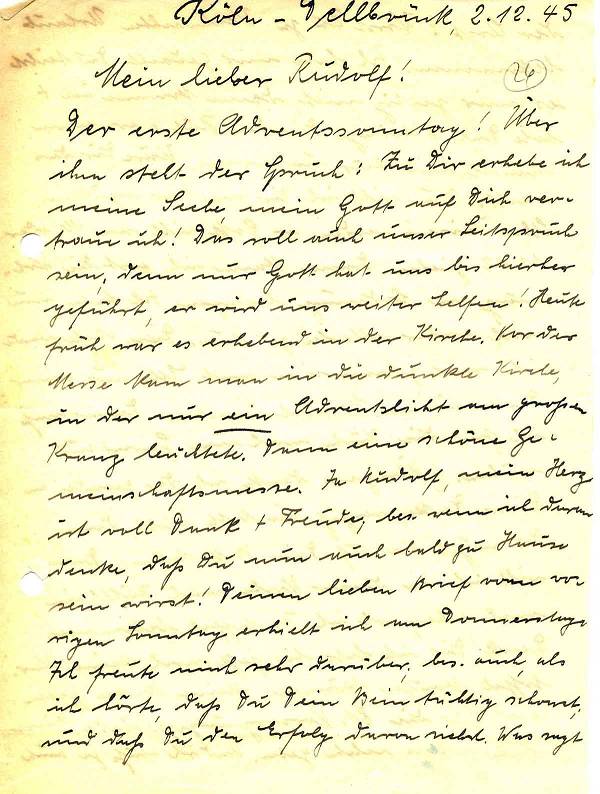 Köln-Dellbrück, 2.12.45
Mein lieber Rudolf! 26
Der erste Adventssonntag! Über
ihm steht der Spruch: Zu Dir erhebe ich
meine Seele, mein Gott auf Dich ver-
traue ich! Das soll auch unser Leitspruch
sein, denn nur Gott hat uns bis hierher
geführt, er wird uns weiter helfen! Heute
früh war es erhebend in der Kirche. Vor der
Messe kam man in die dunkle Kirche,
in der nur ein Adventslicht am großen
Kranz leuchtete. Dann eine schöne Ge-
meinschaftsmesse. Ja Rudolf, mein Herz
ist voll Dank + Freude, bes. wenn ich daran
denke, daß Du nun auch bald zu Hause
sein wirst! Deinen lieben Brief vom vo-
rigen Sonntag erhielt ich am Donnerstag.
Ich freute mich sehr darüber, bes. auch, als
ich hörte, daß Du Dein Bein tüchtig schonst,
und daß Du den Erfolg davon siehst. Was sagt